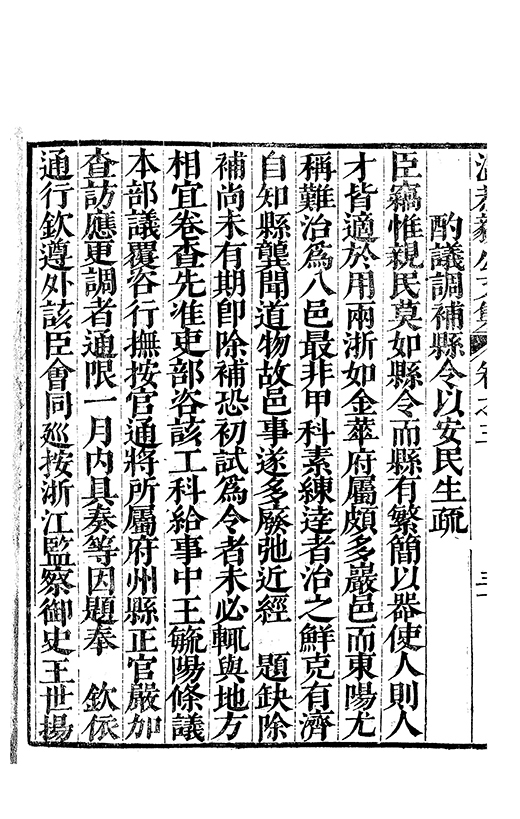 文集 卷之三
酌議調補縣令以安民生疏
臣竊惟親民莫如縣令而縣有繁簡以器使人則人
才皆適於用兩浙如金華府屬頗多巖邑而東陽尤
稱難治為八邑最非甲科素練達者治之鮮克有濟
自知縣龔聞道物故邑事遂多廢弛近經　題缺除
補尚未有期卽除補恐初試為令者未必輒與地方
相宜卷查先准吏部咨該工科給事中王毓陽條議
本部議覆咨行撫按官通將所屬府州縣正官嚴加
查訪應更調者通限一月內具奏等因題奉　欽依
通行欽遵外該臣會同廵按浙江監察御史王世揚